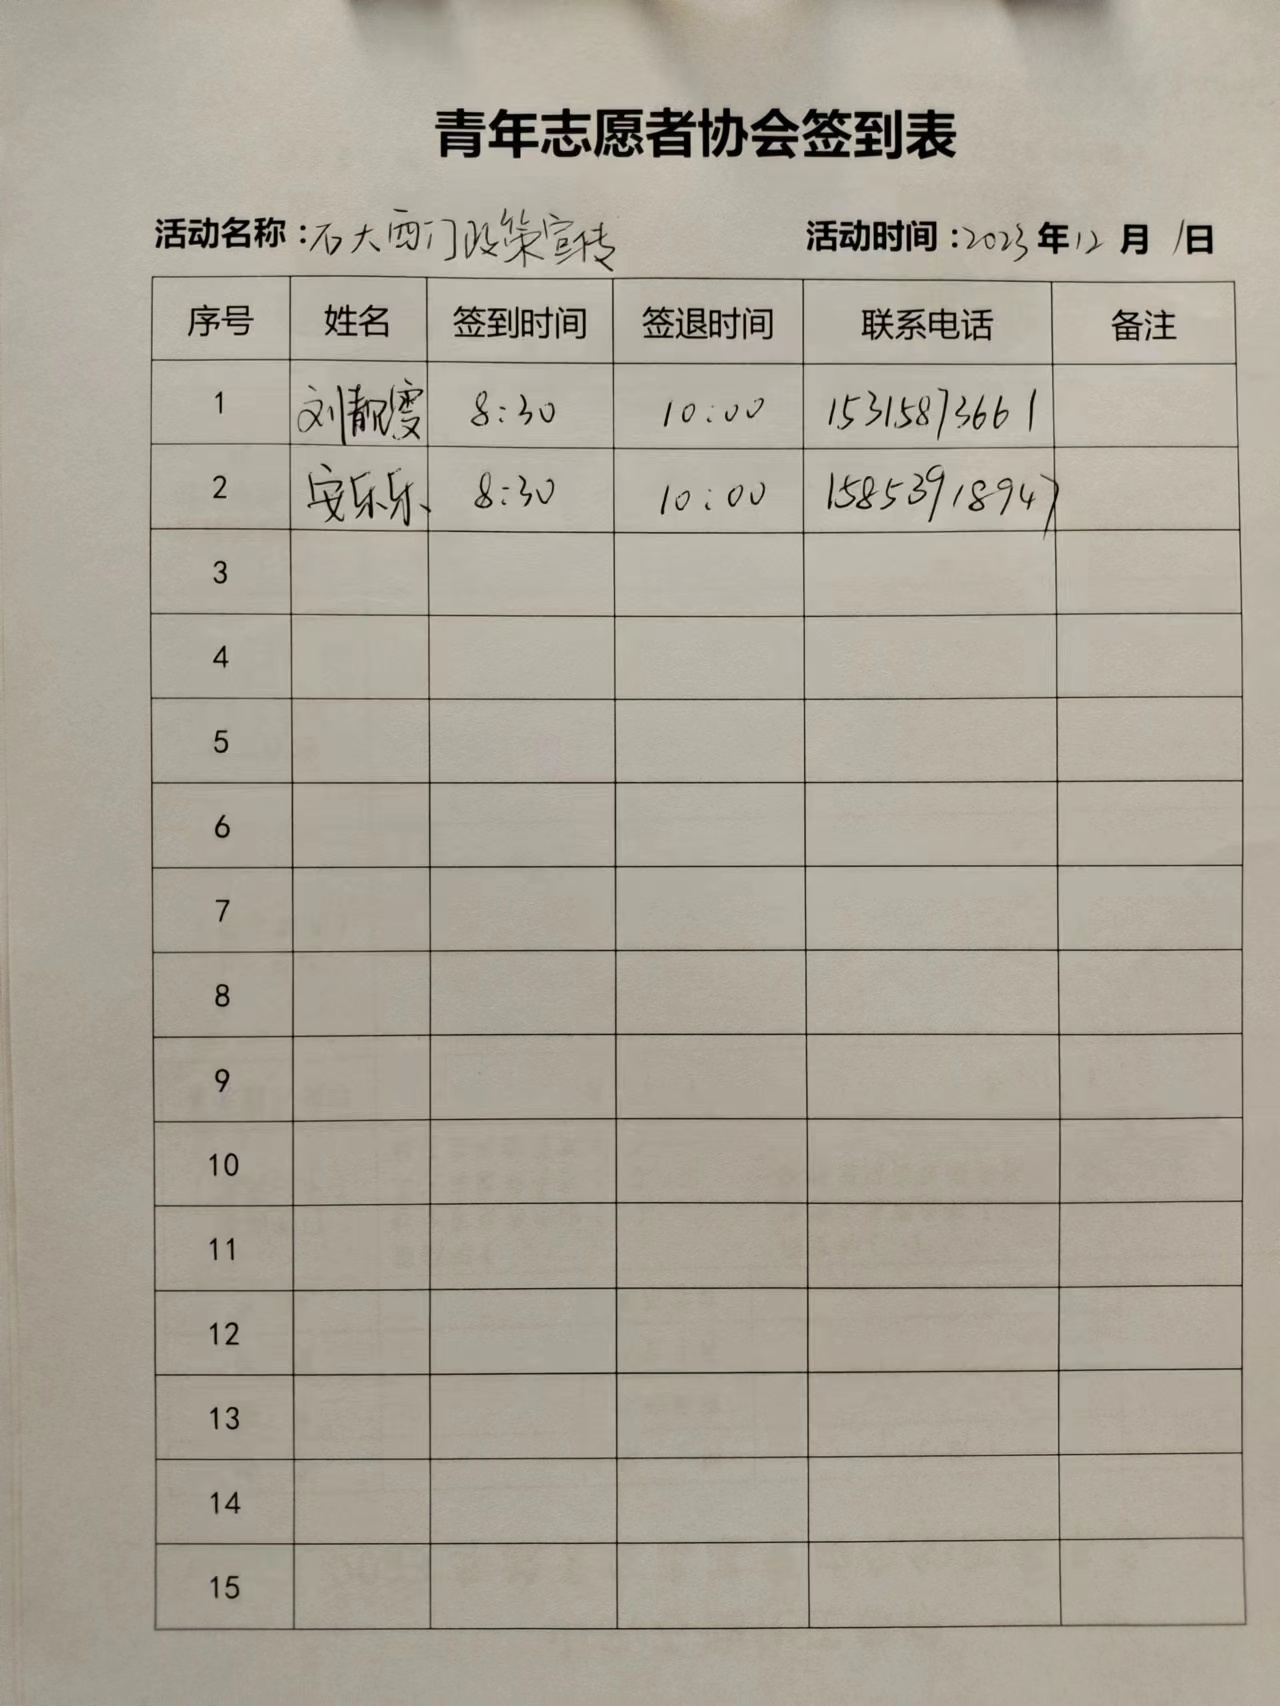 青年志愿者协会签到表
活动名称：石大西门政策宣传 活动时间：2023年12月1日
序号 姓名 签到时间 签退时间 联系电话 备注
1 刘靓雯 8:30 10:00 15315873661
2 安乐乐 8:30 10:00 15853918947
3
4
5
6
7
8
9
10
11
12
13
14
15